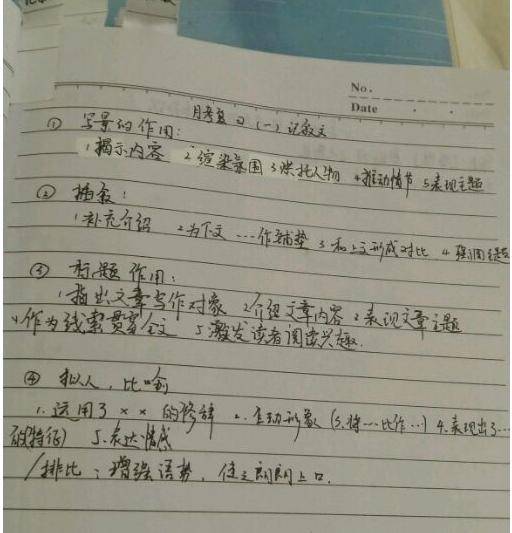 No.
Date
月考复习 (一) 记叙文
① 写景的作用:
1揭示内容 2渲染氛围 3烘托人物 4推动情节 5表现主题
② 插叙:
1补充介绍 2为下文…作铺垫 3和上文形成对比 4强调主题
③ 标题作用:
1指出文章写作对象 2介绍文章内容 2表现文章主题
4作为线索贯穿全文 5激发读者阅读兴趣.
④ 拟人,比喻
1.运用了××的修辞 2.生动形象 (3.将…比作…) 4.表现出了…
的特征) 5.表达情感
/排比:增强语势,使之朗朗上口.